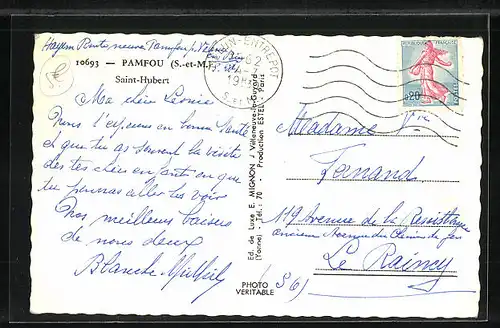 10693 — PAMFOU (S.-et-M.)
Saint-Hubert
Ma chère
Nous t'espérons en bonne santé
et que tu as souvent la visite
des tes chers enfants ou que
tu pourras aller les voir
Nos meilleurs baisers
de nous deux
Blanche
Ed. de Luxe E. MIGNON / Villeneuve-la-Guyard
(Yonne) - Tél. : 70 Production ESTEL - Paris
PHOTO
VERITABLE
ENTREPOT
REPUBLIQUE FRANÇAISE
0,20
POSTES
Madame Vve
Fernand
119 Avenue de la Résistance
ancienne Avenue du Chemin de fer
Le Raincy